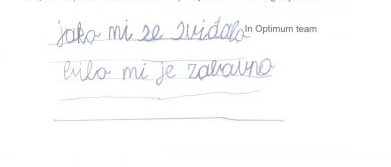 jako mi se sviđalo In Optimum team
bilo mi je zabavno